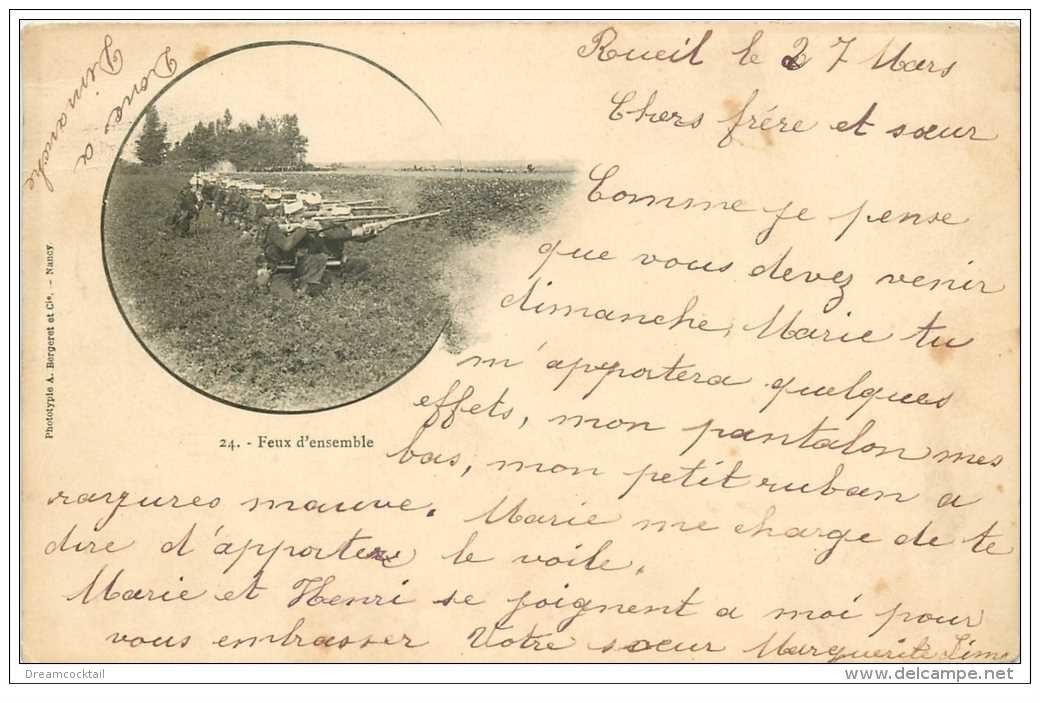 Donc a
Dimanche
Rueil le 27 Mars
Chers frére et sœur
Comme je pense
que vous devez venir
dimanche, Marie tu
m'apportera quelques
effets, mon pantalon mes
bas, mon petit ruban a
rayures mauve. Marie me charge de te
dire d'apporter le voile.
Marie et Henri se joignent a moi pour
vous embrasser Votre sœur Marguerite
Phototypie A. Bergeret et Cie. — Nancy
24. - Feux d'ensemble
Dreamcocktail
delcampe.net